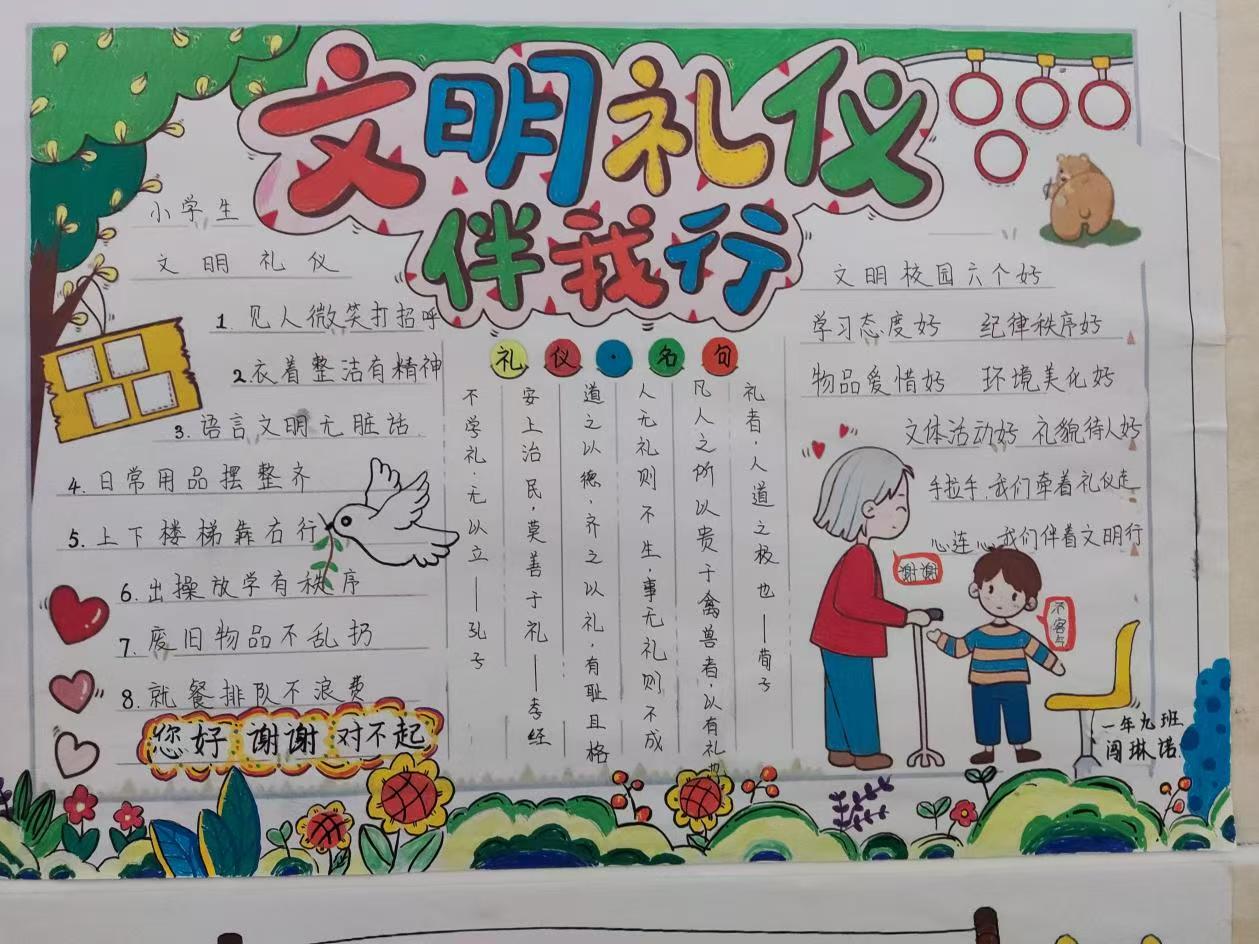 文明礼仪
伴我行
小学生
文明礼仪
1. 见人微笑打招呼
2. 衣着整洁有精神
3. 语言文明无脏话
4. 日常用品摆整齐
5. 上下楼梯靠右行
6. 出操放学有秩序
7. 废旧物品不乱扔
8. 就餐排队不浪费
您好 谢谢 对不起
礼仪·名句
礼者,人道之极也——荀子
凡人之所以贵于禽兽者,以有礼也
人无礼则不生,事无礼则不成
道之以德,齐之以礼,有耻且格
安上治民,莫善于礼——孝经
不学礼,无以立——孔子
文明校园六个好
学习态度好 纪律秩序好
物品爱惜好 环境美化好
文体活动好 礼貌待人好
手拉手,我们牵着礼仪走
心连心,我们伴着文明行
谢谢
不客气
一年九班
闫琳诺